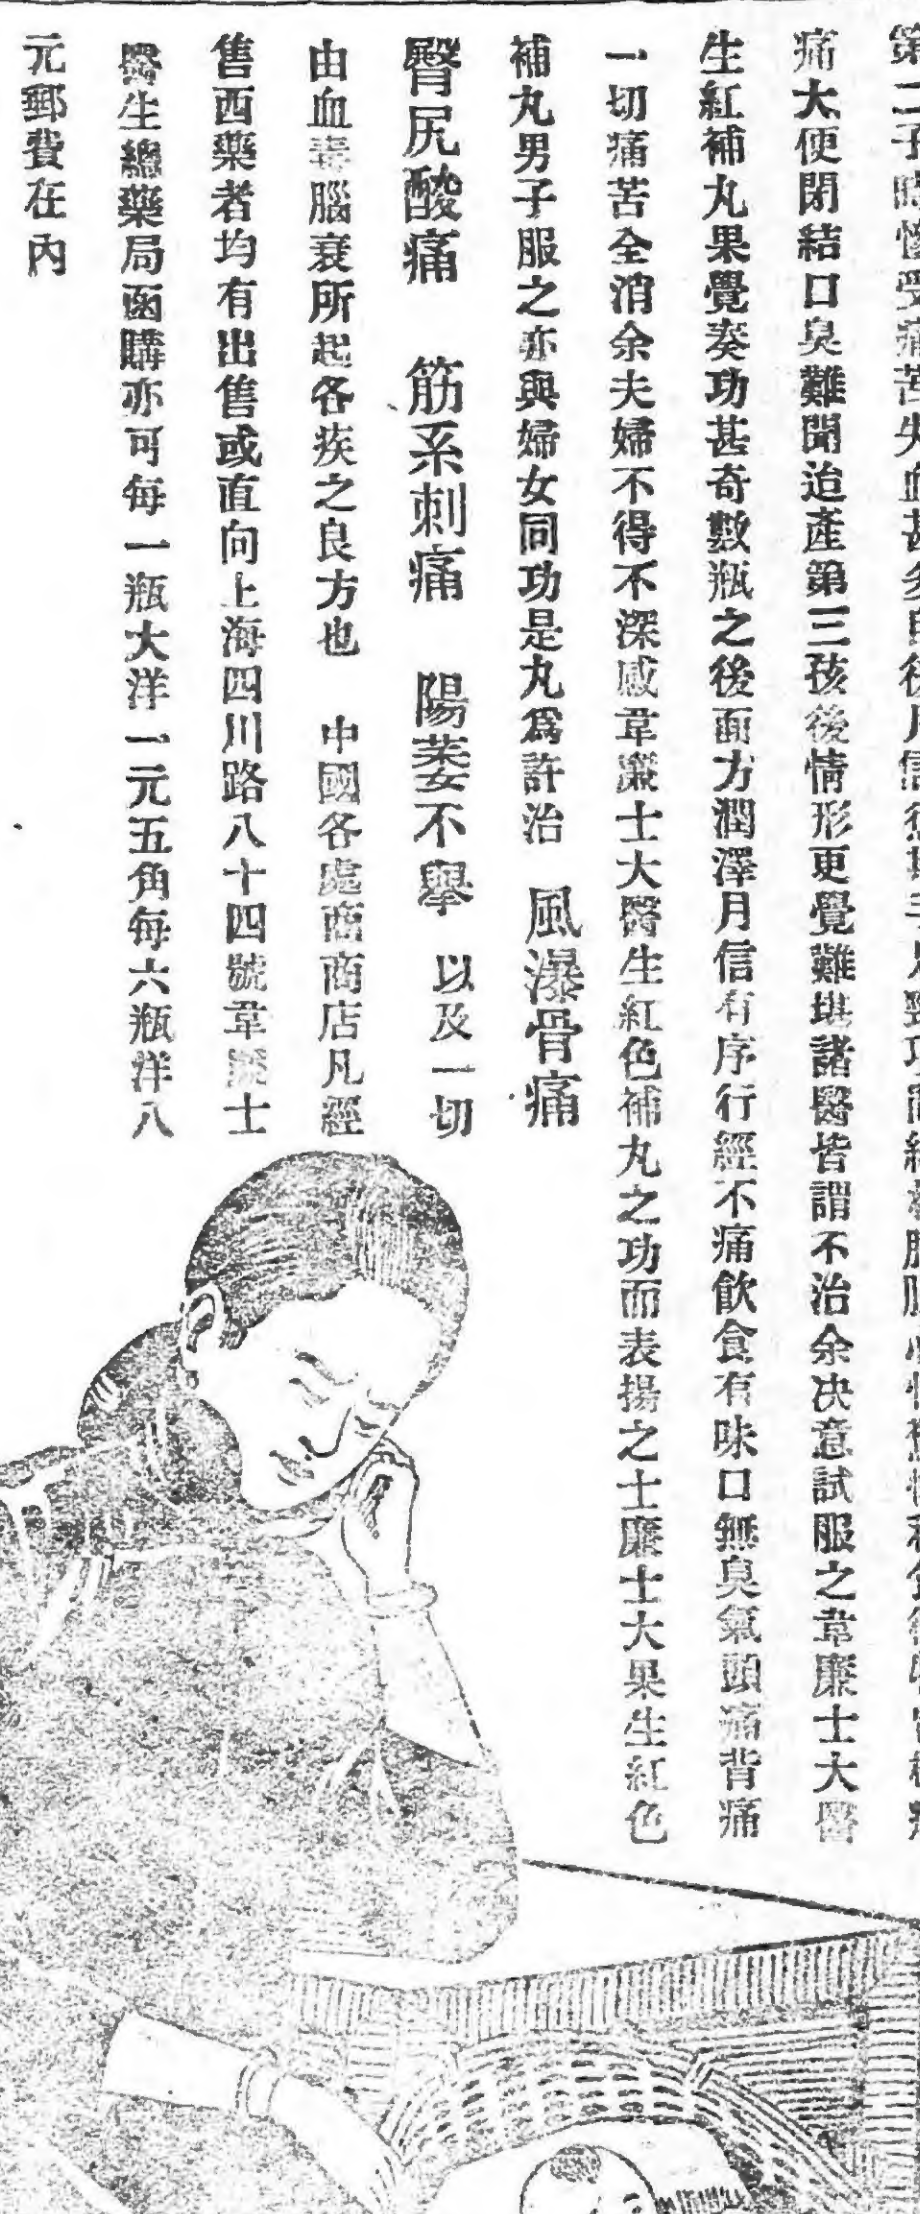 第二子時慘受痛苦失血甚多自後月信
痛大便閉結口臭難聞迨產第三孩後情形更覺難堪諸醫皆謂不治余决意試服之韋廉士大醫
生紅補丸果覺奏功甚奇數瓶之後面方潤澤月信有序行經不痛飲食有味口無臭氣頭痛背痛
一切痛苦全消余夫婦不得不深感韋濂士大醫生紅色補丸之功而表揚之士廉士大果生紅色
補丸男子服之亦與婦女同功是丸爲許治 風瀑骨痛
臀尻酸痛 筋系刺痛 陽萎不舉 以及一切
由血毒腦衰所起各疾之良方也 中國各處商商店凡經
售西藥者均有出售或直向上海四川路八十四號韋濂士
醫生總藥局函購亦可每一瓶大洋一元五角每六瓶洋八
元郵費在內